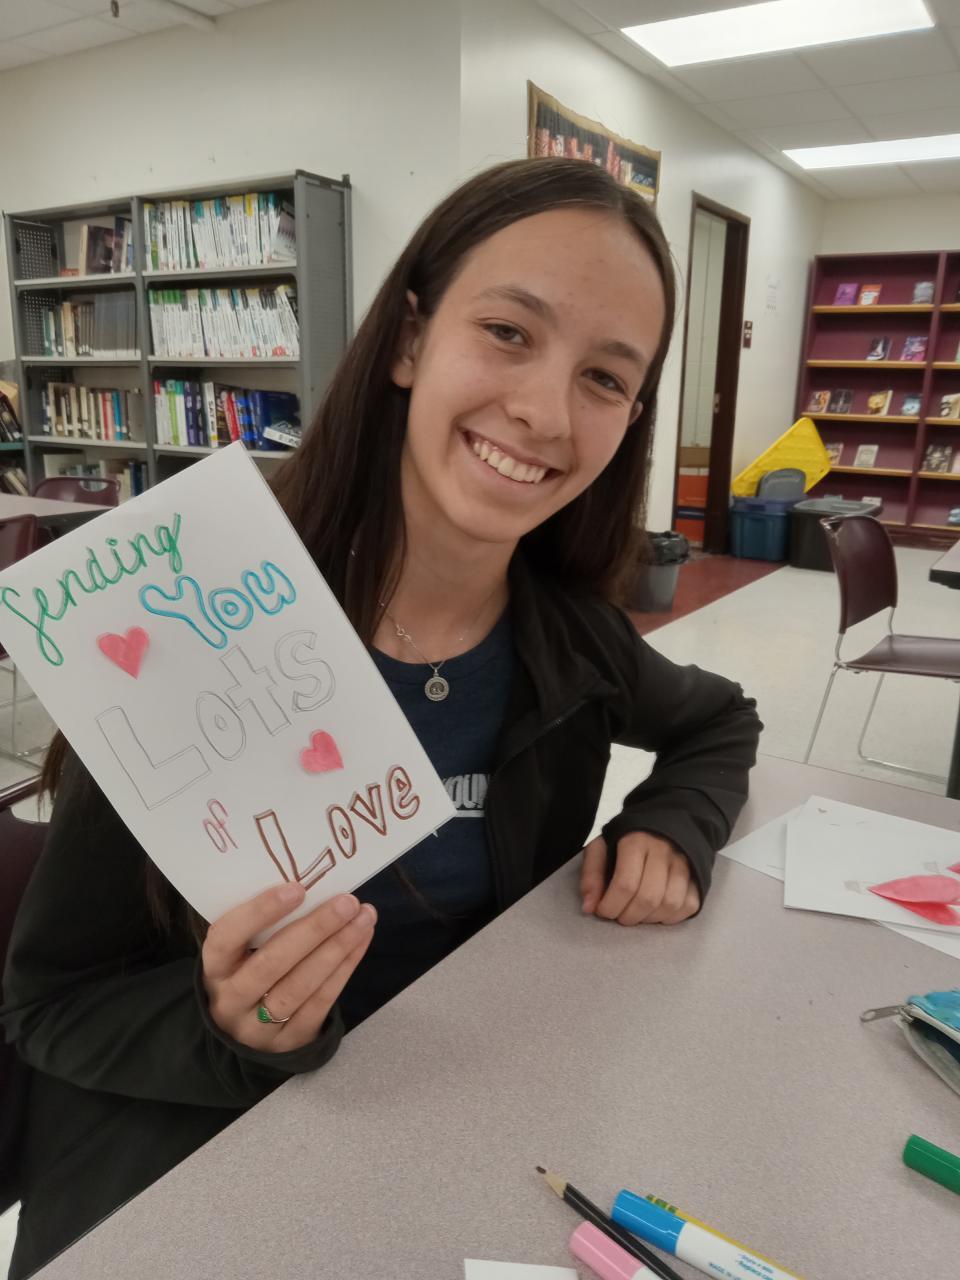 Sending
You
Lots
of
Love